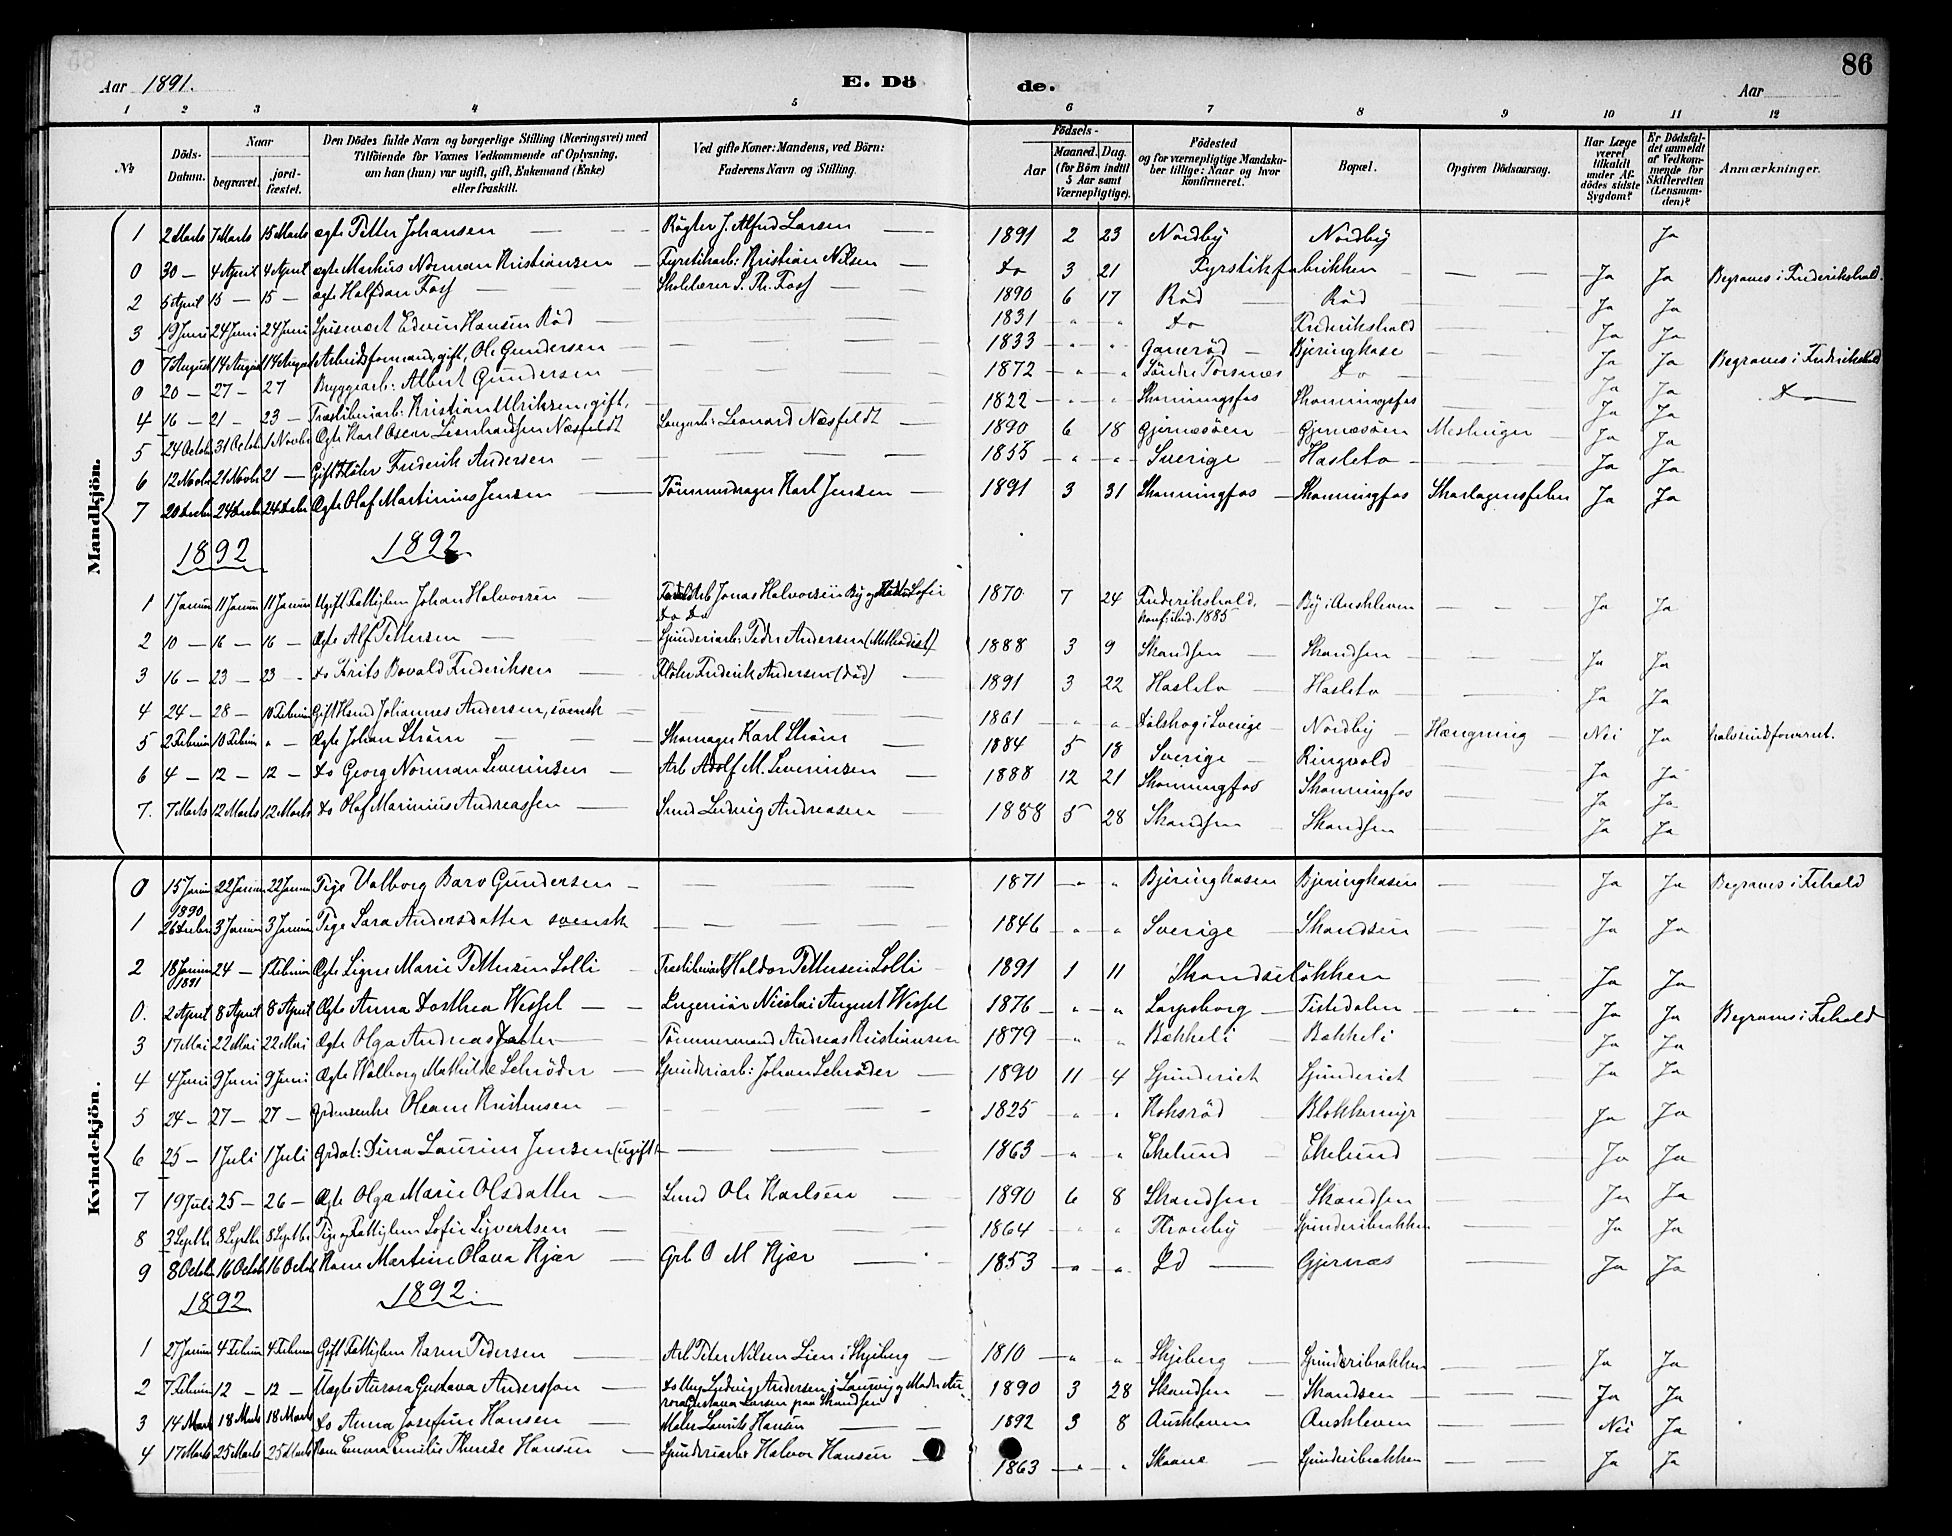 86
Aar 1891. E. Dö de. Aar
1 2 3 4 5 6 7 8 9 10 11 12
No Döds-Datum. Naar begravet. jordfæstet. Den Dödes fulde Navn og borgerlige Stilling (Næringsvei) med Tilföiende for Voxnes Vedkommende af Oplysning, om han (hun) var ugift, gift, Enkemand (Enke) eller fraskilt. Ved gifte Koner: Mandens, ved Börn: Faderens Navn og Stilling. Födsels- Aar Maaned. Dag. (for Börn indtil 5 Aar samt Værnepligtige). Födested og for værnepligtige Mandskaber tillige: Naar og hvor konfirmeret. Bopæl. Opgiven Dödsaarsag. Har Læge været tilkaldt under Afdödes sidste Sygdom? Er Dödsfaldet anmeldt af Vedkommende for Skifteretten (Lensmanden)? Anmærkninger.
Mandkjön.
1 2 Marts 7 Marts 15 Marts ægte Petter Johansen Røgter J. Alfred Larsen 1891 2 23 Nordby Nordby Ja
0 30 — 4 April 4 April ægte Markus Norman Kristiansen Fyrstikarb: Kristian Nilsen do 3 21 Fyrstikfabrikken Ja Ja Begraves i Frederikshald.
2 5 April 15 — 15 — ægte Halfdan Foss Skolelærer S. Th. Foss 1890 6 17 Rød Rød Ja Ja
3 19 Juni 24 Juni 24 Juni Spisevært Edvin Hansen Rød 1831 " " do Frederikshald Ja Ja
0 7 August 14 August 14 August Arbeidsformand, gift, Ole Gundersen 1833 " " Ganerød Bjeringhase Ja Ja Begraves i Frederikshald
0 20 — 27 — 27 Bryggearb: Albert Gundersen 1872 " " Søndre Torsnæs do Ja Ja do
4 16 — 21 — 23 — Træsliberiarb: Kristian Ulriksen, gift, 1822 " " Skonningsfos Skonningsfos Ja Ja
5 24 Octobr 31 Octobr 1 Novbr Ægte Karl Oscar Leonhardsen Næsfeldt Leonard Næsfeldt 1890 6 18 Gjernæsøen Gjernæsøen Meslinger Ja Ja
6 12 Novbr 21 Novbr 21 — Gift Fløter Frederik Andersen 1855 " " Sverige Hasleto Ja Ja
7 20 Decbr 24 Decbr 24 Decbr Ægte Olaf Martinius Jensen Tømmerdrager Karl Jensen 1891 3 31 Skonningfos Skonningfos Skarlagensfeber Ja Ja
1892 1892
1 1 Januar 11 Januar 11 Januar Ugift Fattiglem Johan Halvorsen Jonas Halvorsen By og Sofie do do 1870 7 24 Frederikshald, konf: ibid: 1885 By i Ja Ja
2 10 — 16 — 16 — Ægte Alf Pettersen Spinderiarb: Peder Andersen (Methodist) 1888 3 9 Skandsen Skandsen Ja Ja
3 16 — 23 — 23 — do Frits Bovald Frederiksen Fløter Frederik Andersen (død) 1891 3 22 Hasleto Hasleto Ja Ja
4 24 — 28 — 10 Februar Gift Johannes Andersen, svensk 1861 " " i Sverige Nordby Hængning Nei Ja
5 2 Februar 10 Februar " — Ægte Johan Strøm Skomager Karl Strøm 1884 5 18 Sverige Ringvold Ja Ja
6 4 — 12 — 12 — do Georg Norman Severinsen Arb Adolf M. Severinsen 1888 12 21 Skonningfos Skonningfos Ja Ja
7. 7 Marts 12 Marts 12 Marts do Olaf Marinius Andreassen Smed Ludvig Andreasen 1888 5 28 Skandsen Skandsen Ja Ja
Kvindekjön.
0 15 Januar 22 Januar 22 Januar Pige Valborg Baro Gundersen 1871 " " Bjeringhasen Bjeringhasen Ja Ja Begraves i Frhald
1 1890 26 Decbr 3 Januar 3 Januar Pige Sara Andersdatter svensk 1846 " " Sverige Skandsen Ja Ja
2 18 Januar 1891 24 — 1 Februar Ægte Signe Marie Pettersen Solli Træsliberiarb Haldor Pettersen Solli 1891 1 11 Skandseløkken Ja Ja
0. 2 April 8 April 8 April Ægte Anna Dorthea Wessel Ingeniør Nicolai August Wessel 1876 " " Sarpsborg Tistedalen Ja Ja Begraves i Frhald
3 17 Mai 22 Mai 22 Mai Ægte Olga Andreasdatter Tømmermand Andreas Kristiansen 1879 " " Bækkeli Bækkeli Ja Ja
4 4 Juni 9 Juni 9 Juni Ægte Valborg Mathilde Schrøder Spinderiarb: Johan Schrøder 1890 11 4 Spinderiet Spinderiet Ja Ja
5 24 — 27 — 27 — Grdmsenke Oleane Kristensen 1825 " " Koksrød Blokkemyr Ja Ja
6 25 — 1 Juli 1 Juli Grdat: Dina Laurine Jensen (ugift) 1863 " " Ekelund Ekelund Ja Ja
7 19 Juli 25 — 26 — Ægte Olga Marie Olsdatter Smed Ole Karlsen 1890 6 8 Skandsen Skandsen Ja Ja
8 3 Septbr 8 Septbr 8 Septbr Pige og Fattiglem Sofie Syvertsen 1864 " " Spinderibrakken Ja Ja
9 8 Octobr 16 Octobr 16 Octobr Kone Martine Olava Kjær Grb O M Kjær 1853 " " Id Gjernæs Ja Ja
1892 1892.
1 27 Januar 4 Februar 4 Februar Gift Fattiglem Karen Pedersen Arb Peter Nilsen Lien i Skjeberg 1810 " " Skjeberg Spinderibrakken Ja Ja
2 7 Februar 12 — 12 — Uægte Aurora Gustava Andersson Ludvig Andersen i Laurvig og Moder Aurora Gustava Larsen paa Skandsen 1890 3 28 Skandsen Skandsen Ja Ja
3 14 Marts 18 Marts 18 Marts do Anna Josefine Hansen Maler Laurits Hansen 1892 3 8 Nei Ja
4 17 Marts 25 Marts 25 Marts Kone Emma Emilie Therese Hansen Spinderiarb: Halvor Hansen 1863 " " Skaane Spinderibrakken Ja Ja